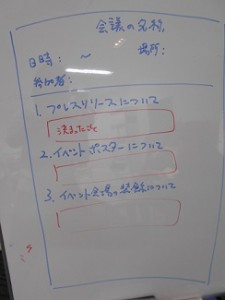 会議の名称
日時： 〜 場所：
参加者：
1. プレスリリースについて
決まったこと
2. イベントポスターについて
3. イベント会場の装飾について